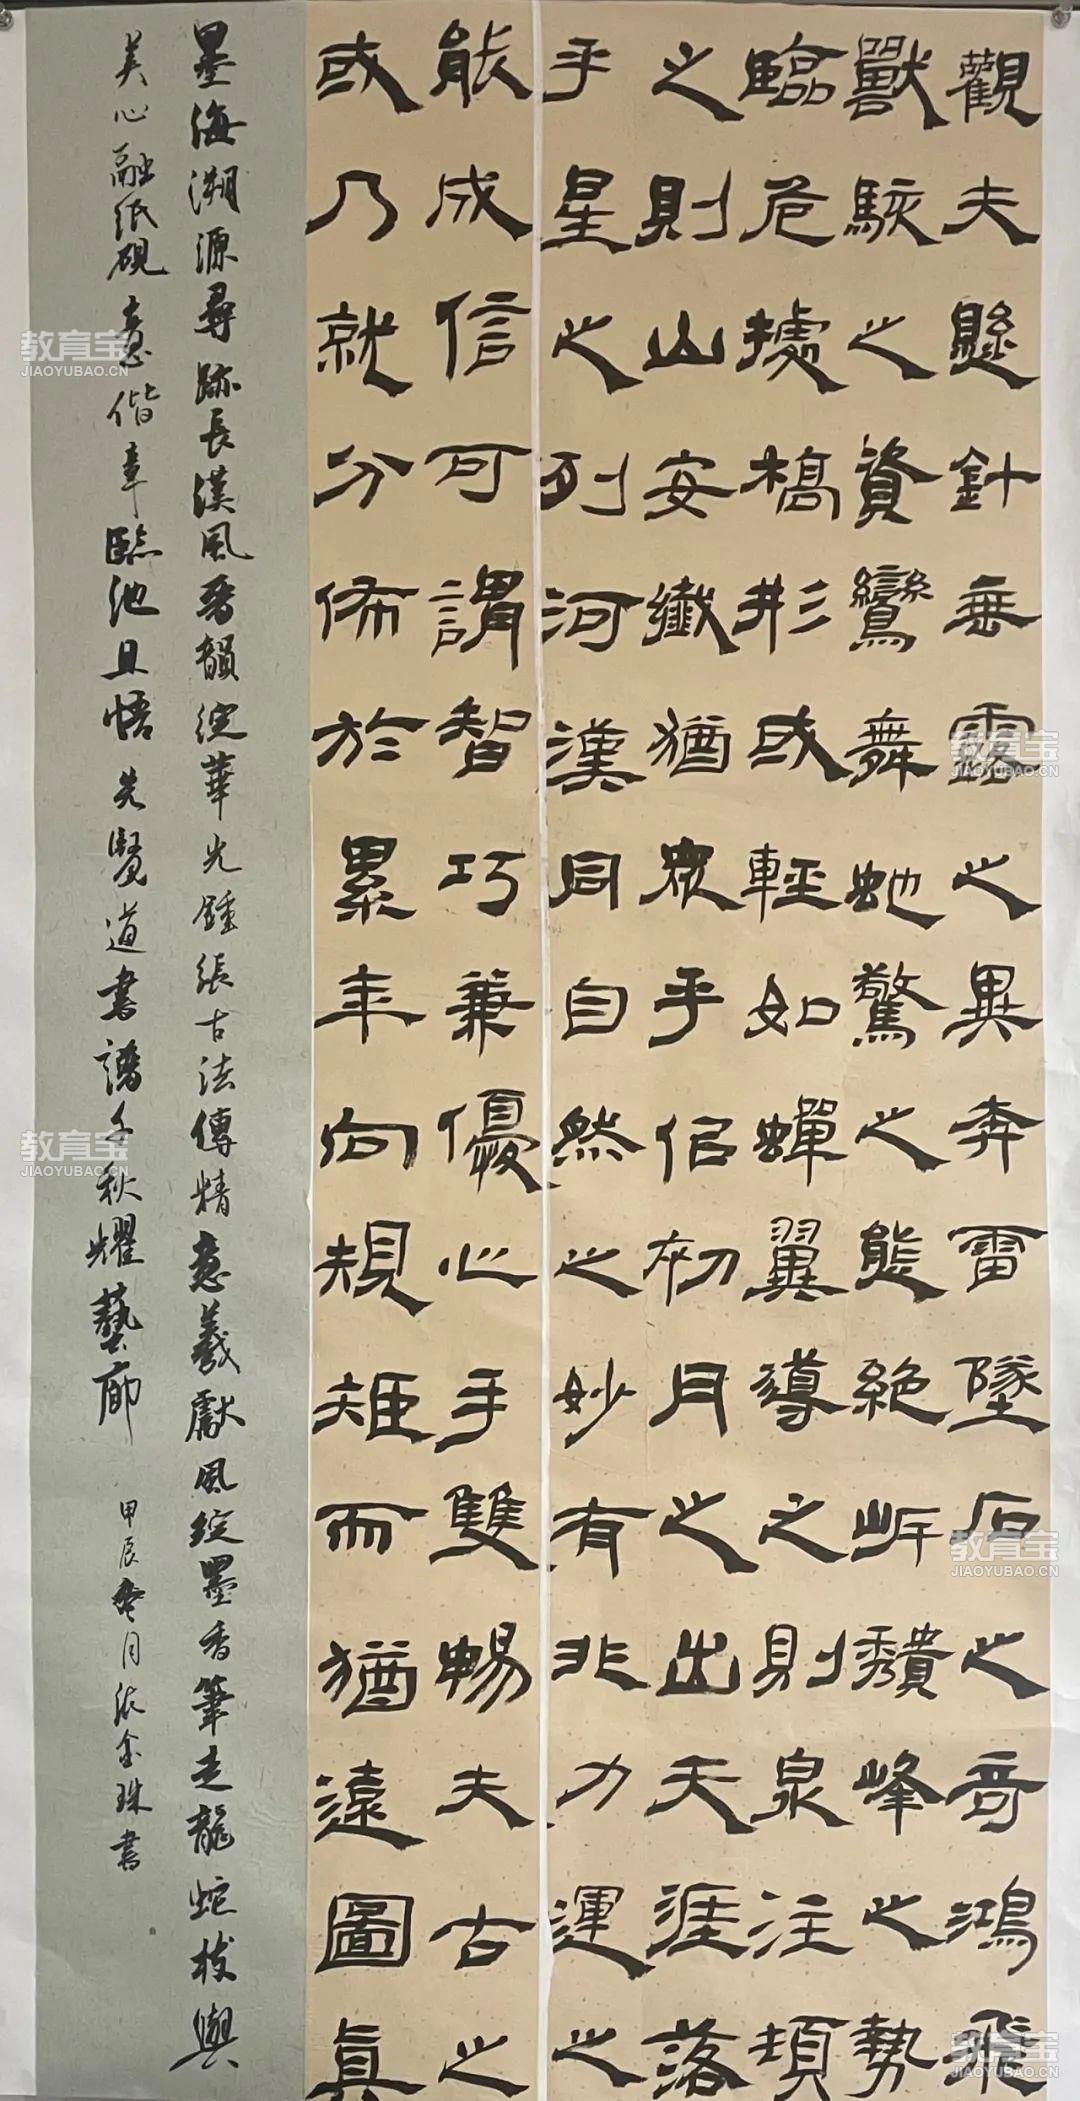 觀夫懸針垂露之異奔雷墜石之奇鴻飛
獸駭之資鸞舞虵驚之態絶岸頹峰之勢
臨危據槁形或輕如蟬翼導之則泉注頓
之則山安纖猶衆乎似初月之出天涯落
乎星之列河漢同自然之妙有非力運之
能成信可謂智巧兼優心手雙暢夫古之
或乃就分佈於累年向規矩而猶遠圖真
墨海溯源尋跡長漢風晉韻綻華光鍾張古法傳精意羲獻風綻墨香筆走龍蛇技與
美心融纸硯意偕章臨池且悟先賢道書譜千秋耀藝廊
甲辰月金珠書
教育宝
JIAOYUBAO.CN
教育宝
JIAOYUBAO.CN
教育宝
JIAOYUBAO.CN
教育宝
JIAOYUBAO.CN
教育宝
JIAOYUBAO.CN